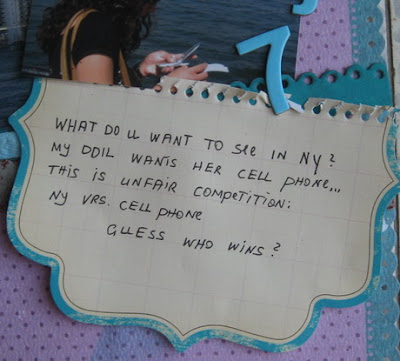 7
WHAT DO U WANT TO See IN NY?
MY DDIL WANTS HER CELL PHONE...
THIS IS UNFAIR COMPETITION:
NY VRS. CELL PHONE
GUESS WHO WINS?